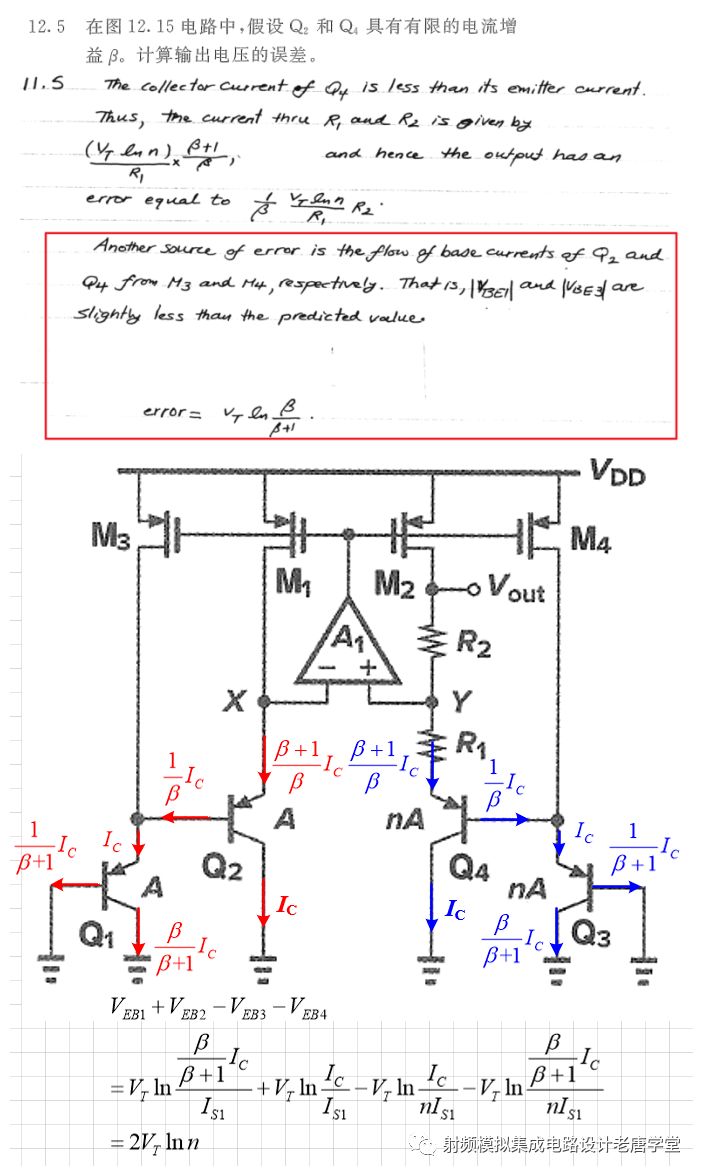 12.5 在图12.15电路中,假设Q₂和Q₄具有有限的电流增
益β。计算输出电压的误差。
11.5 The collector current of Q4 is less than its emitter current.
Thus, the current thru R1 and R2 is given by
(VT ln n)/R1 × (β+1)/β, and hence the output has an
error equal to 1/β VT ln n/R1 R2.
Another source of error is the flow of base currents of Q2 and
Q4 from M3 and M4, respectively. That is, |VBE1| and |VBE3| are
slightly less than the predicted value.
error = VT ln β/(β+1).
VDD
M3 M1 M2 M4
Vout
A1 R2
− +
X Y
R1
(β+1)/β IC (β+1)/β IC
1/β IC 1/β IC
A nA
1/(β+1) IC IC IC 1/(β+1) IC
Q2 Q4
A nA
IC IC
Q1 β/(β+1) IC β/(β+1) IC Q3
VEB1 + VEB2 − VEB3 − VEB4
= VT ln (β/(β+1) IC)/IS1 + VT ln IC/IS1 − VT ln IC/nIS1 − VT ln (β/(β+1) IC)/nIS1
= 2VT ln n
射频模拟集成电路设计老唐学堂